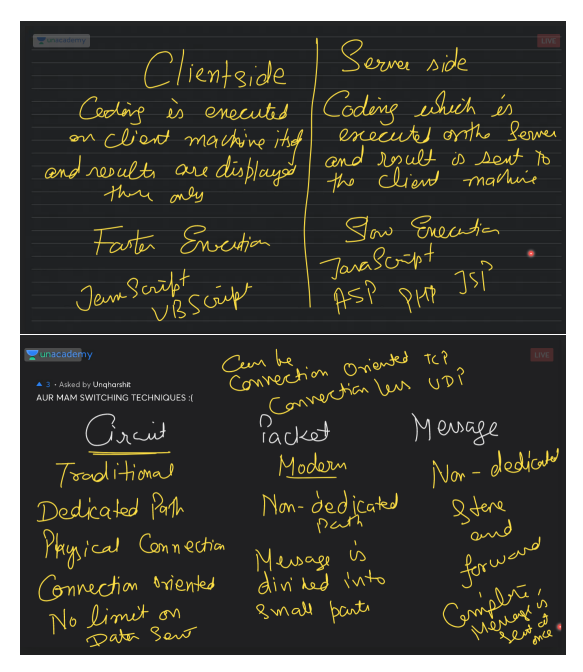 unacademy
LIVE
Clientside
Coding is executed
on client machine itself
and results are displayed
there only
Faster Execution
JavaScript
VBScript
Server side
Coding which is
executed on the Server
and result is sent to
the client machine
Slow Execution
JavaScript
ASP PHP JSP
unacademy
LIVE
3 · Asked by Unqharshit
AUR MAM SWITCHING TECHNIQUES :(
Can be
Connection Oriented TCP
Connection less UDP
Circuit
Traditional
Dedicated Path
Physical Connection
Connection oriented
No limit on
Data Sent
Packet
Modern
Non-dedicated
Path
Message is
divided into
small parts
Message
Non-dedicated
Store
and
forward
Complete
Message is
sent at
once